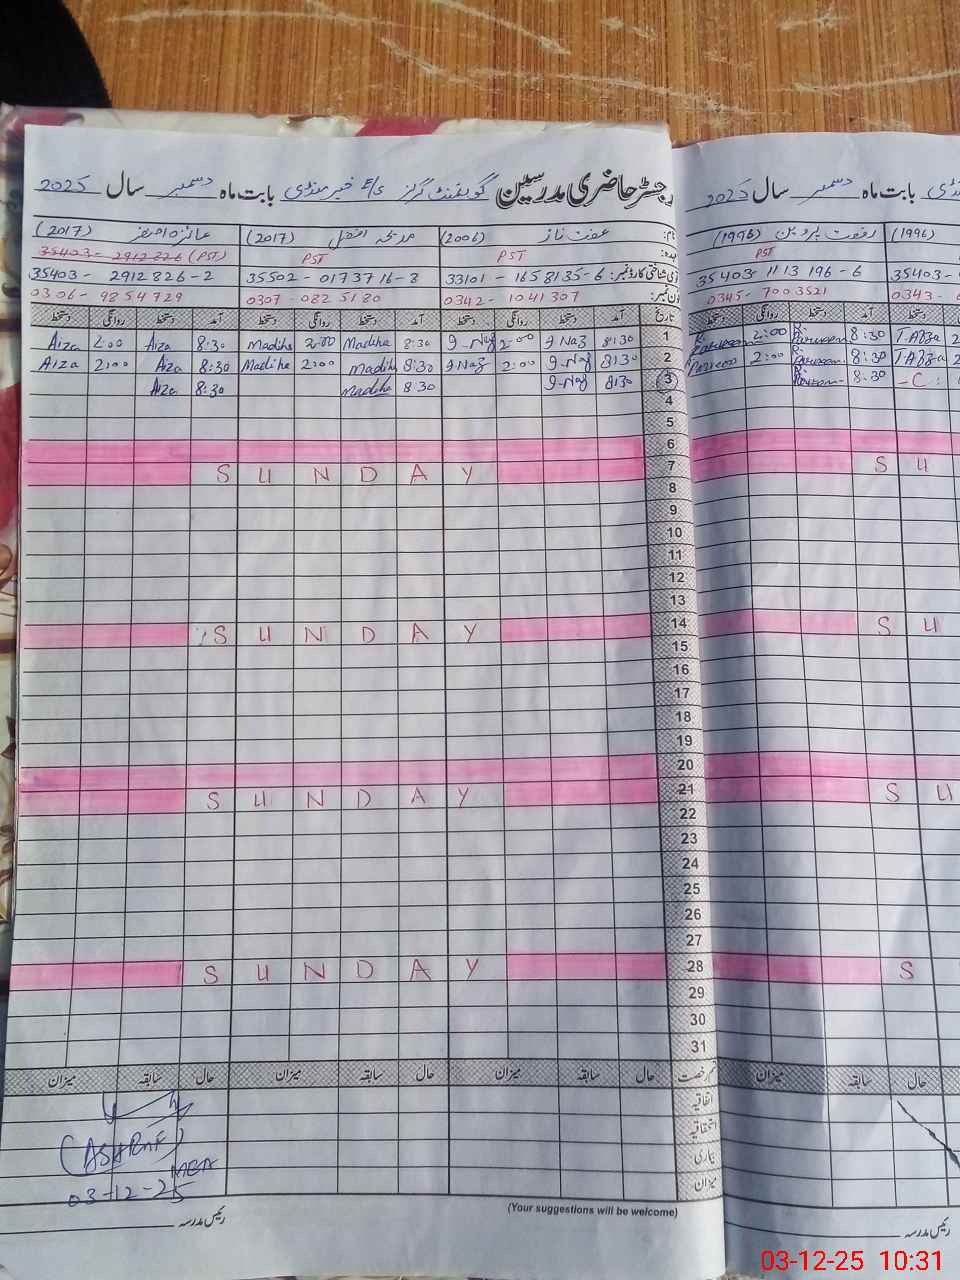 رجسٹر حاضری مدرسین گورنمنٹ گرلز E/S خبر منڈی بابت ماہ دسمبر سال 2025
بابت ماہ دسمبر سال 2025
نام: عفت ناز (2006) مدیحہ افضل (2017) (2017)
(1996) رفعت پروین (1996)
عہدہ: PST PST (PST) 35403-2912826
PST
شناختی کارڈ نمبر: 33101-1658135-6 35502-0173716-8 35403-2912826-2
35403-1113196-6 35403-
فون نمبر: 0342-1041307 0307-0825180 0306-9854729
0345-7003521 0343-
تاریخ آمد دستخط روانگی دستخط آمد دستخط روانگی دستخط آمد دستخط روانگی دستخط
آمد دستخط روانگی دستخط
1 8:30 I-Naz 2:00 I-Naz 8:30 Madiha 2:00 Madiha 8:30 Aiza 2:00 Aiza
T.Afza 8:30 R.Parveen 2:00 R.Parveen
2 8:30 I-Naz 2:00 I-Naz 8:30 Madiha 2:00 Madiha 8:30 Aiza 2:00 Aiza
T.Afza 8:30 R.Parveen 2:00 R.Parveen
3 8:30 I-Naz 8:30 Madiha 8:30 Aiza
-C: 8:30 R.Parveen
4
5
6
7 SUNDAY
SU
8
9
10
11
12
13
14 SUNDAY
SU
15
16
17
18
19
20
21 SUNDAY
SU
22
23
24
25
26
27
28 SUNDAY
S
29
30
31
رخصت حال سابقہ میزان حال سابقہ میزان حال سابقہ میزان
حال سابقہ میزان
اتفاقیہ
استحقاقیہ
بیماری
میزان
(ASHRAF)
AEO
03-12-25
(Your suggestions will be welcome)
رئیس مدرسہ
رئیس مدرسہ
03-12-25 10:31